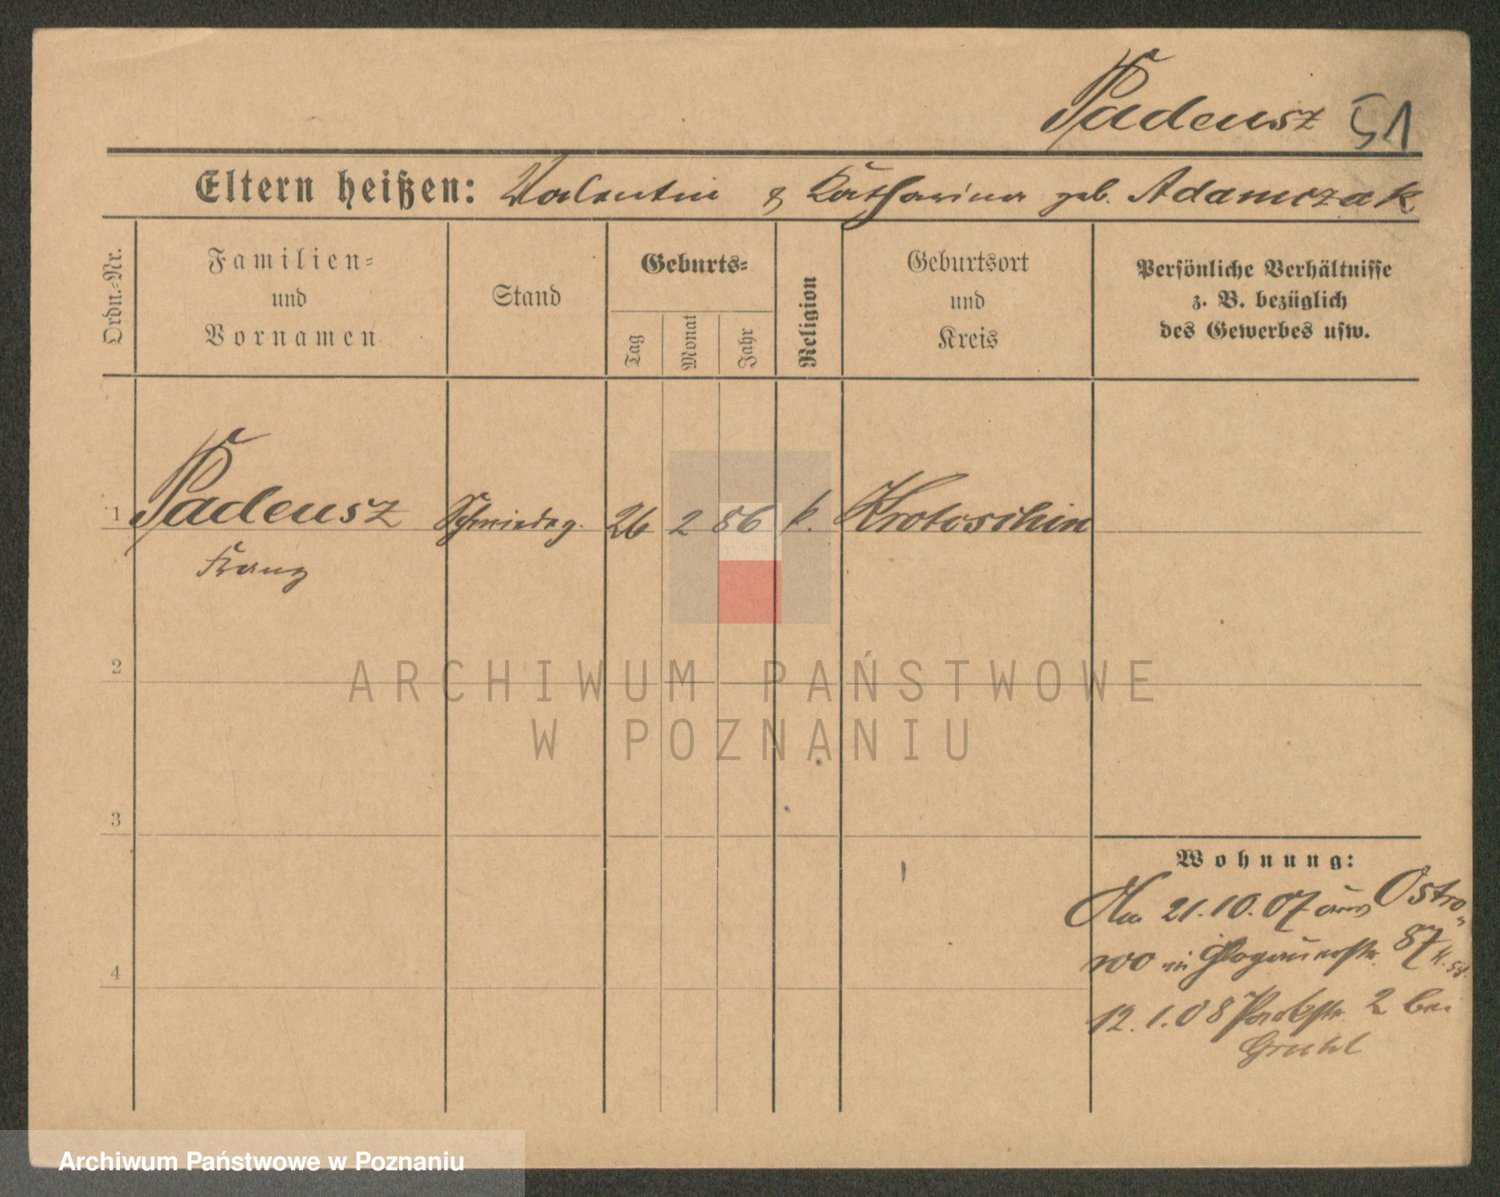 Padeusz 51
Eltern heißen: Valentin & Katharina geb. Adamczak
Ordn.-Nr.
Familien- und Vornamen
Stand
Geburts-
Tag
Monat
Jahr
Religion
Geburtsort und Kreis
Persönliche Verhältnisse
z. B. bezüglich
des Gewerbes usw.
1 Padeusz Schmiedeg. 26 2 86 k. Krotoschin
Franz
2
ARCHIWUM PAŃSTWOWE
W POZNANIU
3
Wohnung:
Am 21.10.07 aus Ostro-
wo in Glogauerstr. 87
4
12.1.08 Parkstr. 2 bei
Archiwum Państwowe w Poznaniu